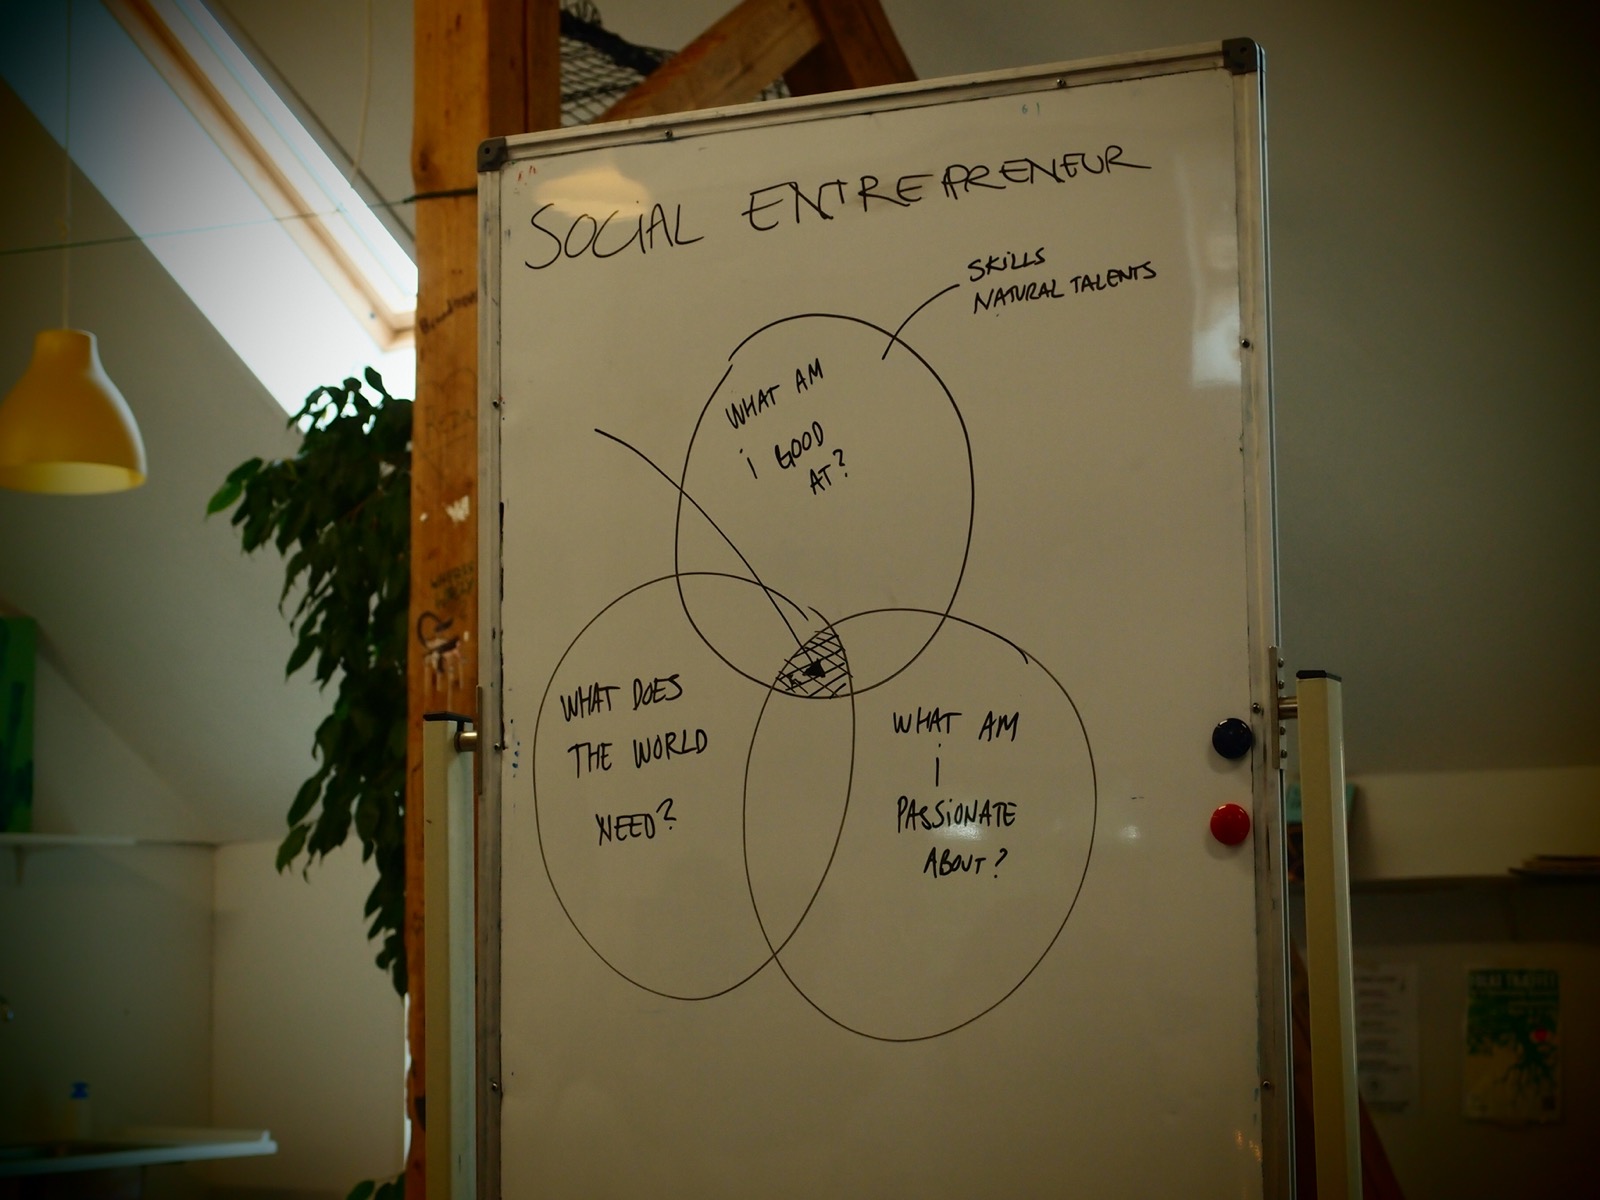 SOCIAL ENTREPRENEUR
SKILLS
NATURAL TALENTS
WHAT AM
I GOOD
AT?
WHAT DOES
THE WORLD
NEED?
WHAT AM
I
PASSIONATE
ABOUT?